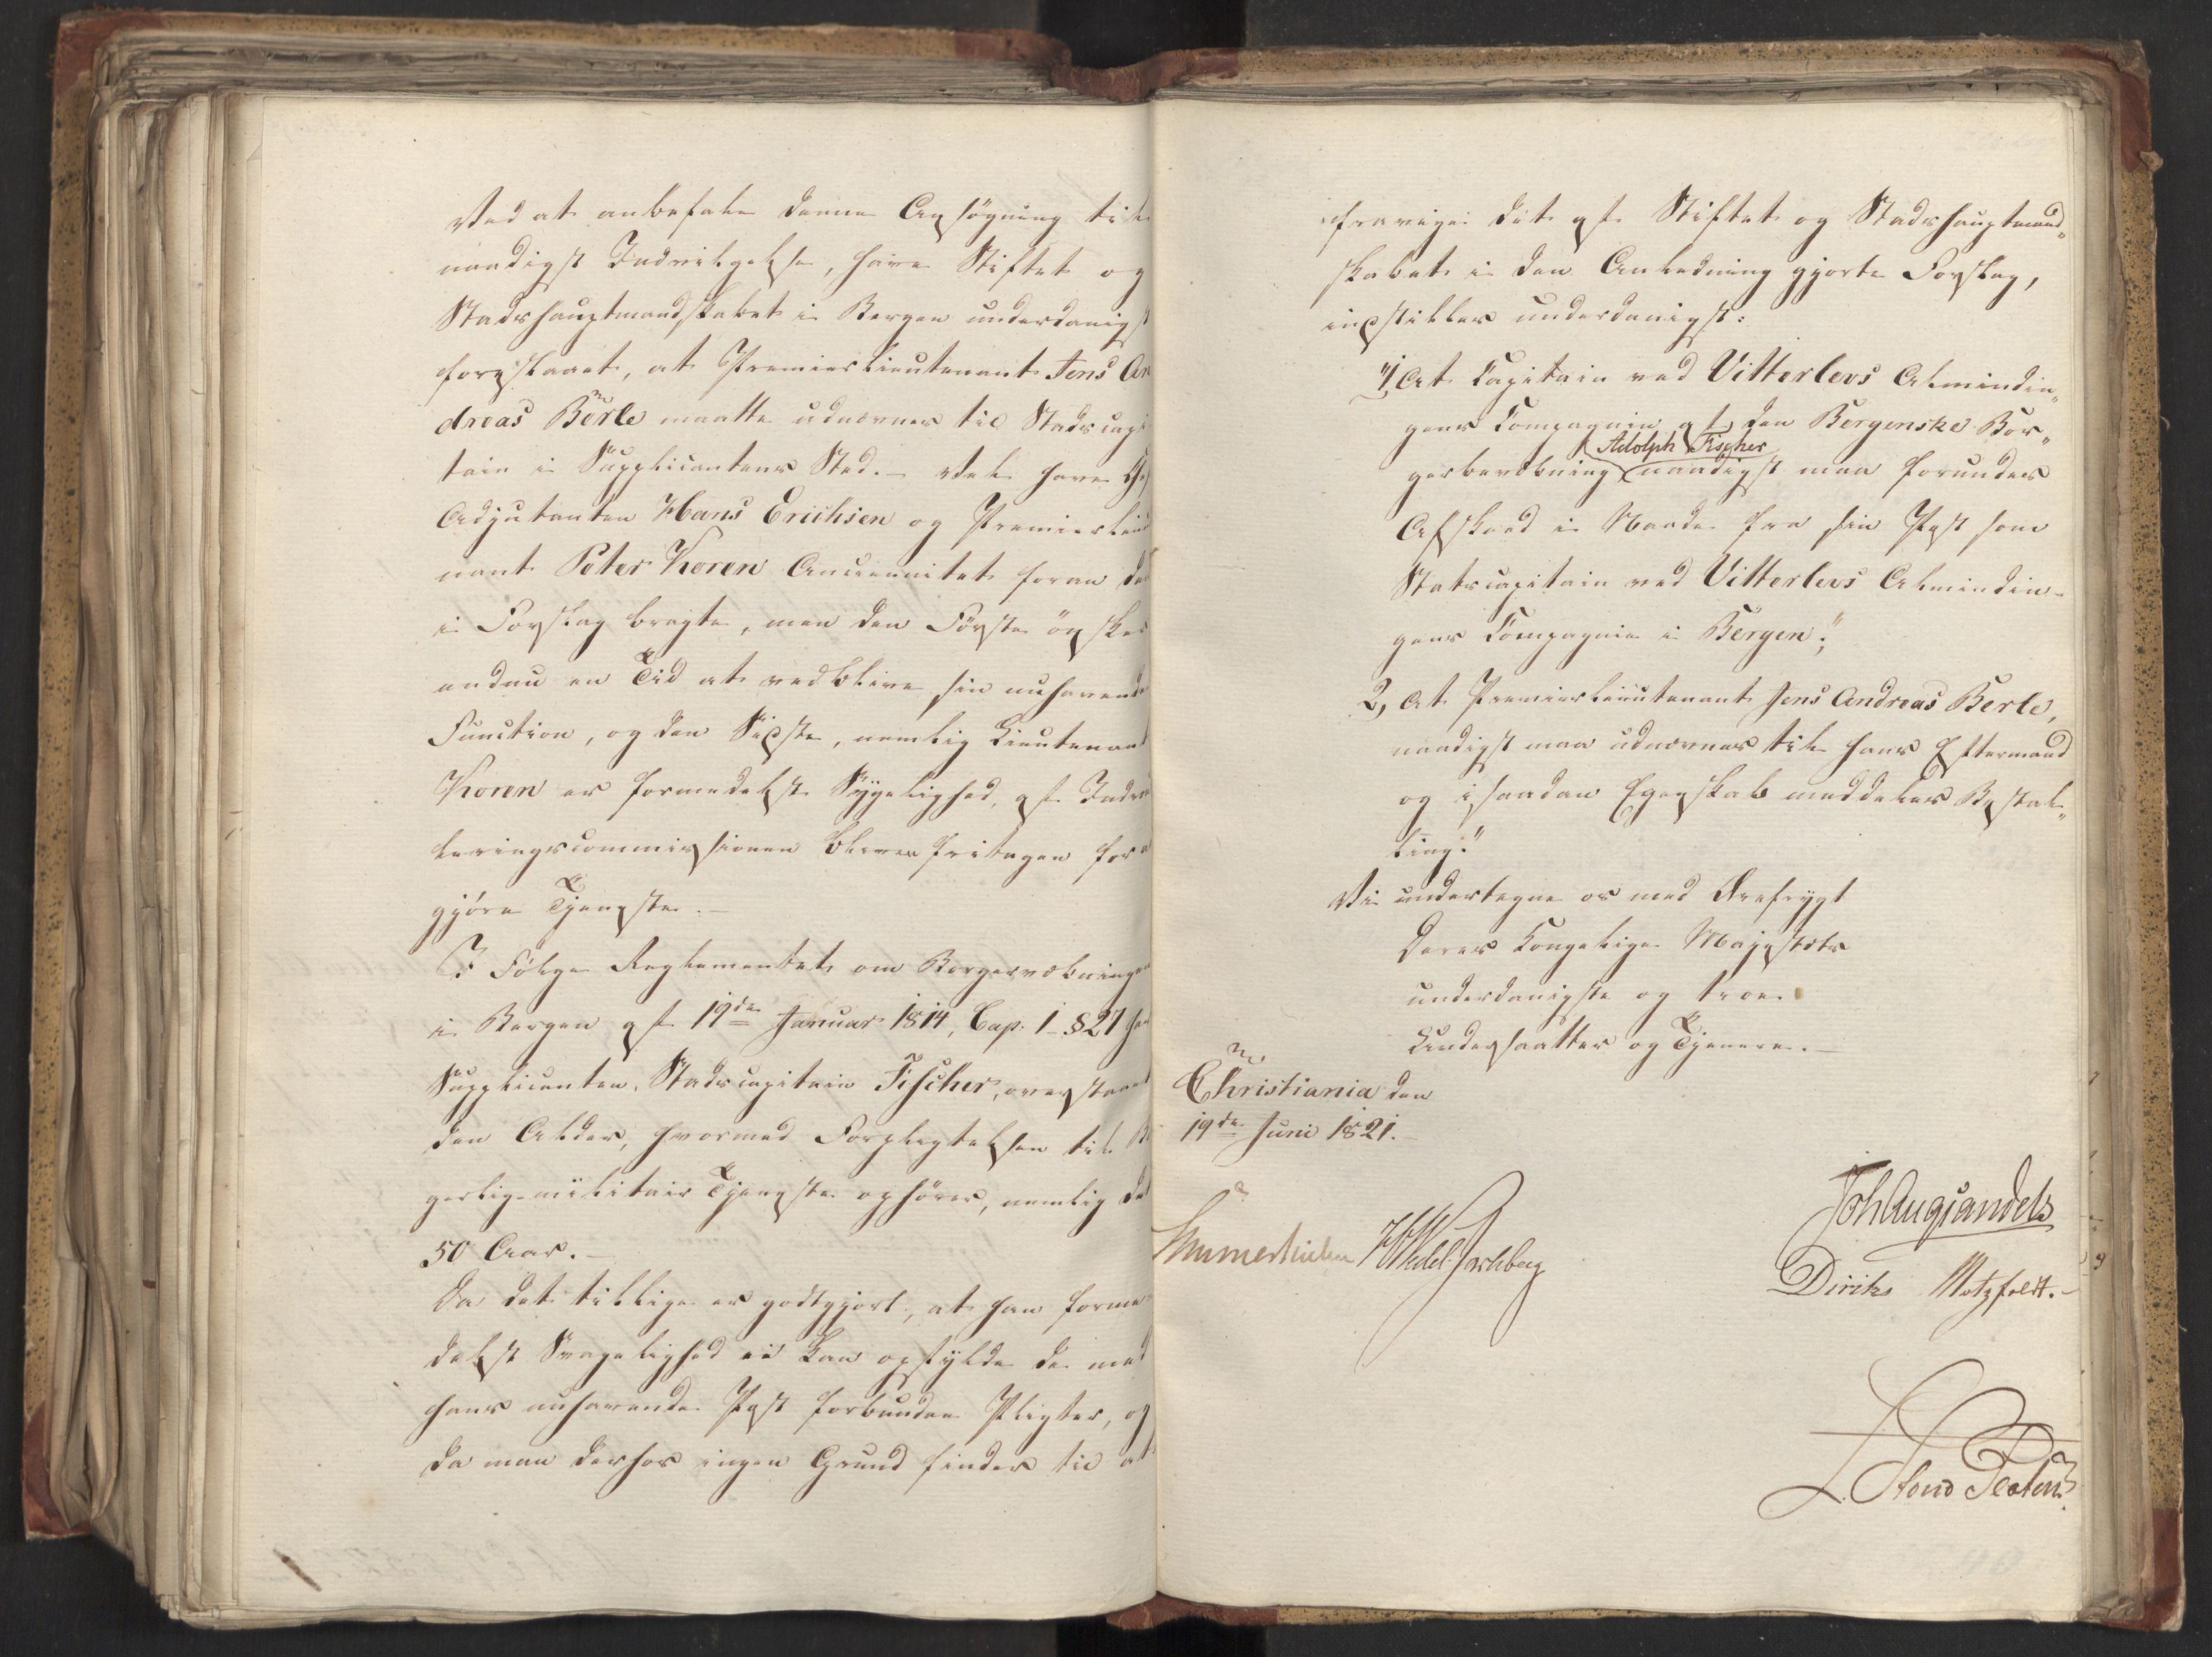 Ved at anbefale denne Ansögning til
naadigst Indvilgelse, have Stiftet og
Stadshauptmandskabet i Bergen underdanigst
foreslaaet, at Premierlieutenant Jens An
dreas Berle maatte udnævnes til Stadscapi
tain i Supplicantens Sted. – Vel have
Adjutanten Hans Erichsen og Premierlieut
nant Peter Koren Anciennitet foran den
i Forslag bragte, men den Förste önsker
endnu en Tid at vedblive sin nuhavende
Function, og den Sidste, nemlig Lieutenant
Koren er formedelst Sygelighed, af Indrul
leringscommissionen bleven fritagen for at
gjöre Tjeneste. –
I Fölge Reglementet om Borgervæbningen
i Bergen af 19de Januar 1814, Cap. 1 §27 har
Supplicanten, Stadscapitain Fischer, overstaaet
den Alder, hvormed Forpligtelsen til Bor
gerlig-militair Tjeneste ophörer, nemlig det
50 Aar. –
Da det tillige er godtgjort, at han forme
delst Svagelighed ei kan opfylde de med
hans nuhavende Post forbundne Pligter, og
da man derhos ingen Grund finder til at
fravige det af Stiftet og Stadshauptmand„
skabet i den Anledning gjorte Forslag,
indstilles underdanigst:
1, At Capitain ved Vitterlevs Almindin„
gens Compagnie af den Bergenske Bor„
Adolph Fischer
gerbevæbning naadigst maa forundes
Afskeed i Naade fra sin Post som
Statscapitain ved Vitterlevs Almindin-
gens Compagnie i Bergen;"
2, At Premierlieutenant Jens Andreas Berle,
naadigst maa udnævnes til hans Eftermand
og i saadan Egenskab meddeles Bestal„
ling."
Vi undertegne os med Ærefrygt
Deres Kongelige Majestæts
underdanigste og troe
Undersaatter og Tjenere. –
Christiania den
19de Juni 1821. –
Joh Aug Sandels
Sommerhielm HWedel Jarlsberg
Diriks Motzfeldt. –
L. Stoud Platou